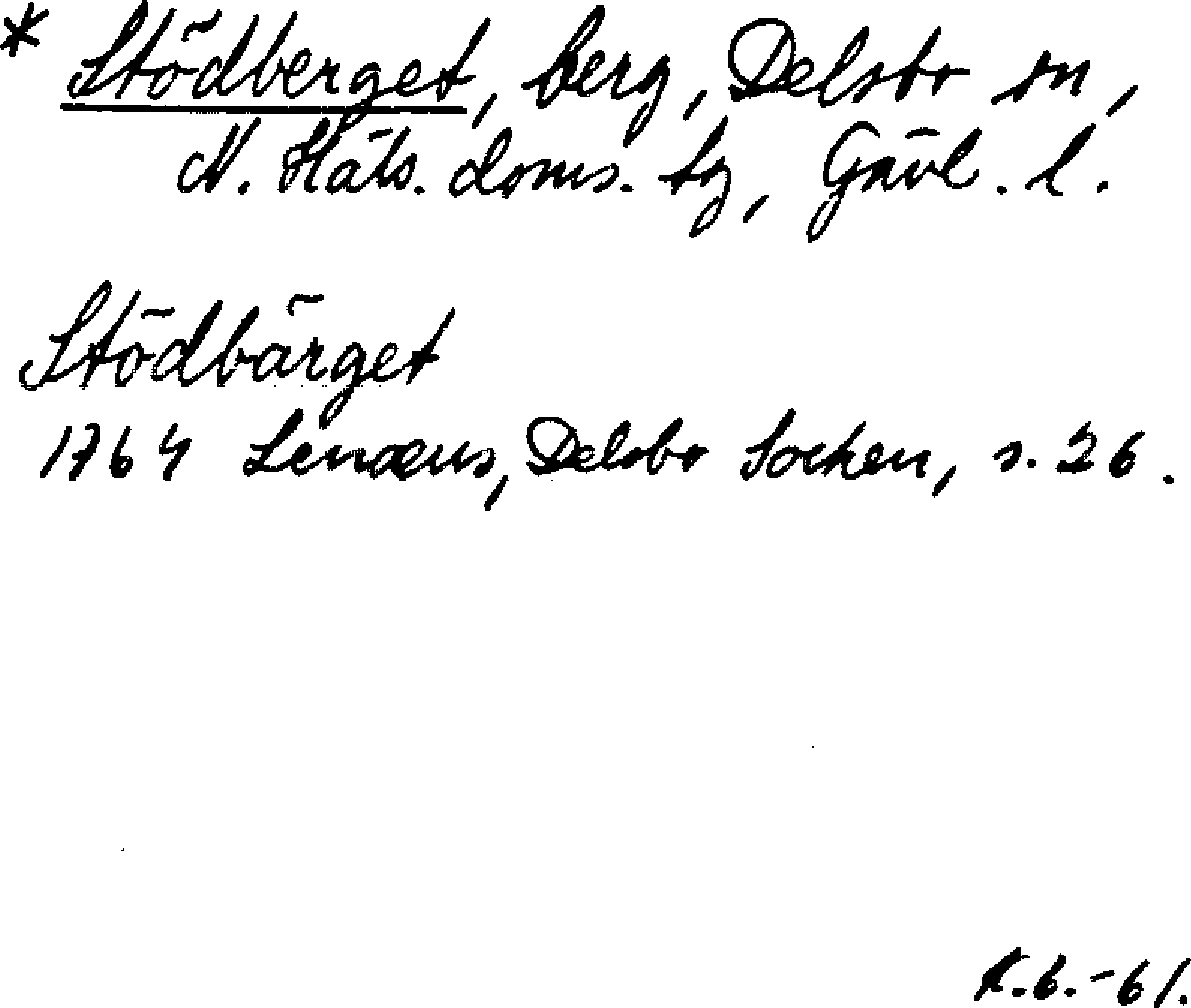 * Stödberget, berg, Delsbo sn,
N. Häls. doms. tg, Gävl. l.
Stödbärget
1764 Lenæus, Delsbo Socken, s. 26.
K.B.-61.